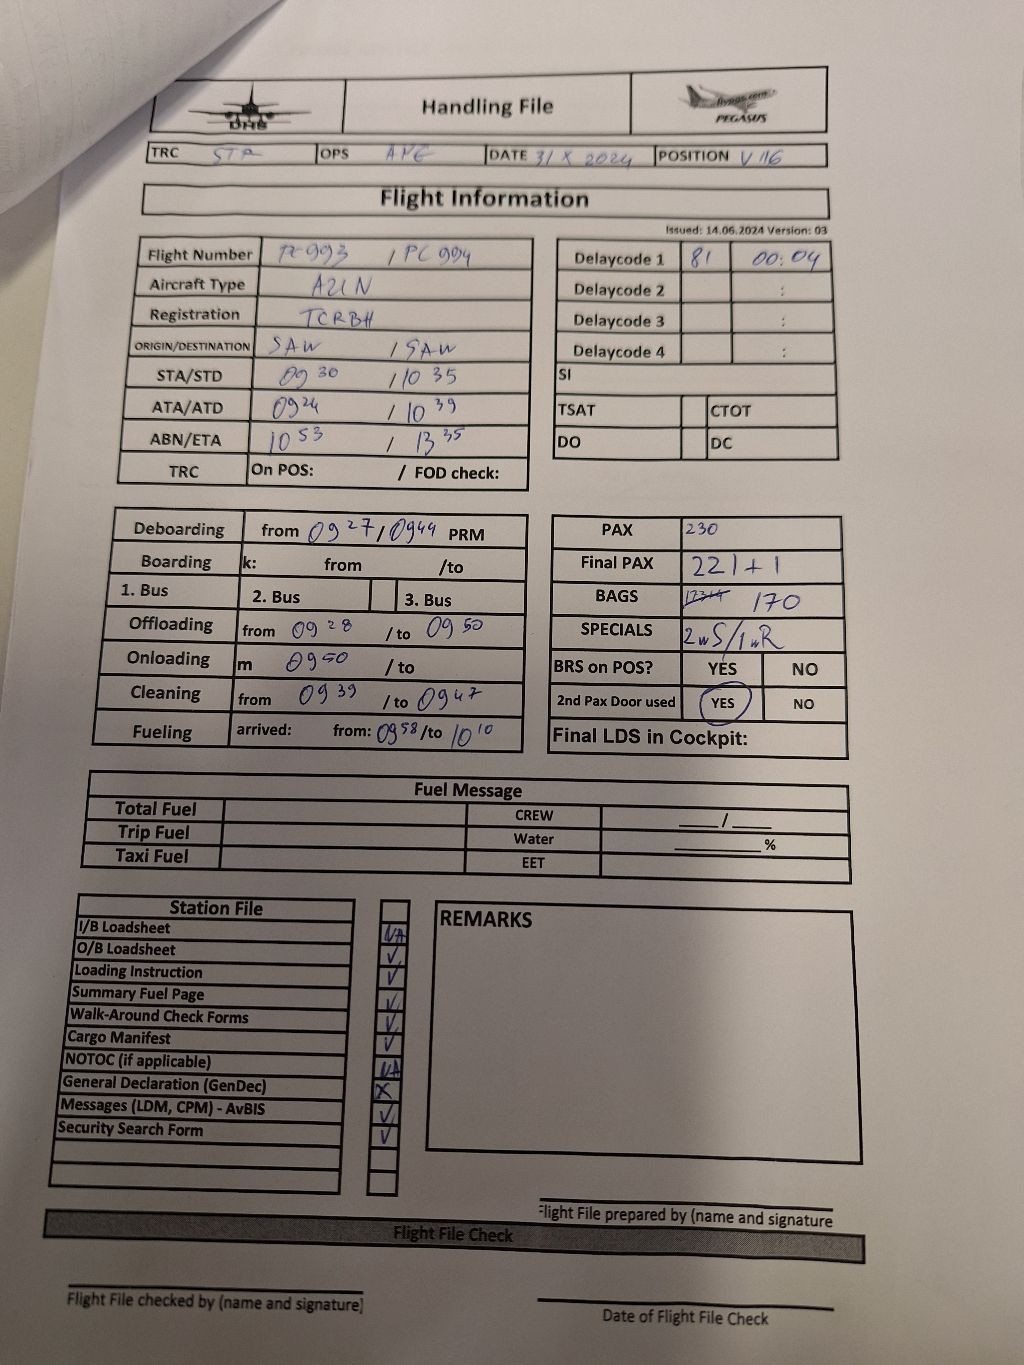 DHS
Handling File
flypgs.com
PEGASUS
TRC STR OPS DATE 31 X 2024 POSITION V 116
Flight Information
Issued: 14.06.2024 Version: 03
Flight Number PC 993 / PC 994
Aircraft Type A21N
Registration TCRBH
ORIGIN/DESTINATION SAW / SAW
STA/STD 09 30 / 10 35
ATA/ATD 09 24 / 10 39
ABN/ETA 10 53 / 13 35
TRC On POS: / FOD check:
Delaycode 1 81 00:04
Delaycode 2 :
Delaycode 3 :
Delaycode 4 :
SI
TSAT CTOT
DO DC
Deboarding from 09 27 / 09 44 PRM
Boarding k: from /to
1. Bus 2. Bus 3. Bus
Offloading from 09 28 / to 09 50
Onloading m 09 50 / to
Cleaning from 09 39 / to 09 47
Fueling arrived: from: 09 58 /to 10 10
PAX 230
Final PAX 221 + 1
BAGS 170
SPECIALS 2wS/1wR
BRS on POS? YES NO
2nd Pax Door used YES NO
Final LDS in Cockpit:
Fuel Message
Total Fuel CREW ___/___
Trip Fuel Water ________%
Taxi Fuel EET
Station File
I/B Loadsheet NA
O/B Loadsheet ✓
Loading Instruction ✓
Summary Fuel Page ✓
Walk-Around Check Forms ✓
Cargo Manifest ✓
NOTOC (if applicable) NA
General Declaration (GenDec) X
Messages (LDM, CPM) - AvBIS ✓
Security Search Form ✓
REMARKS
Flight File prepared by (name and signature
Flight File Check
Flight File checked by (name and signature)
Date of Flight File Check